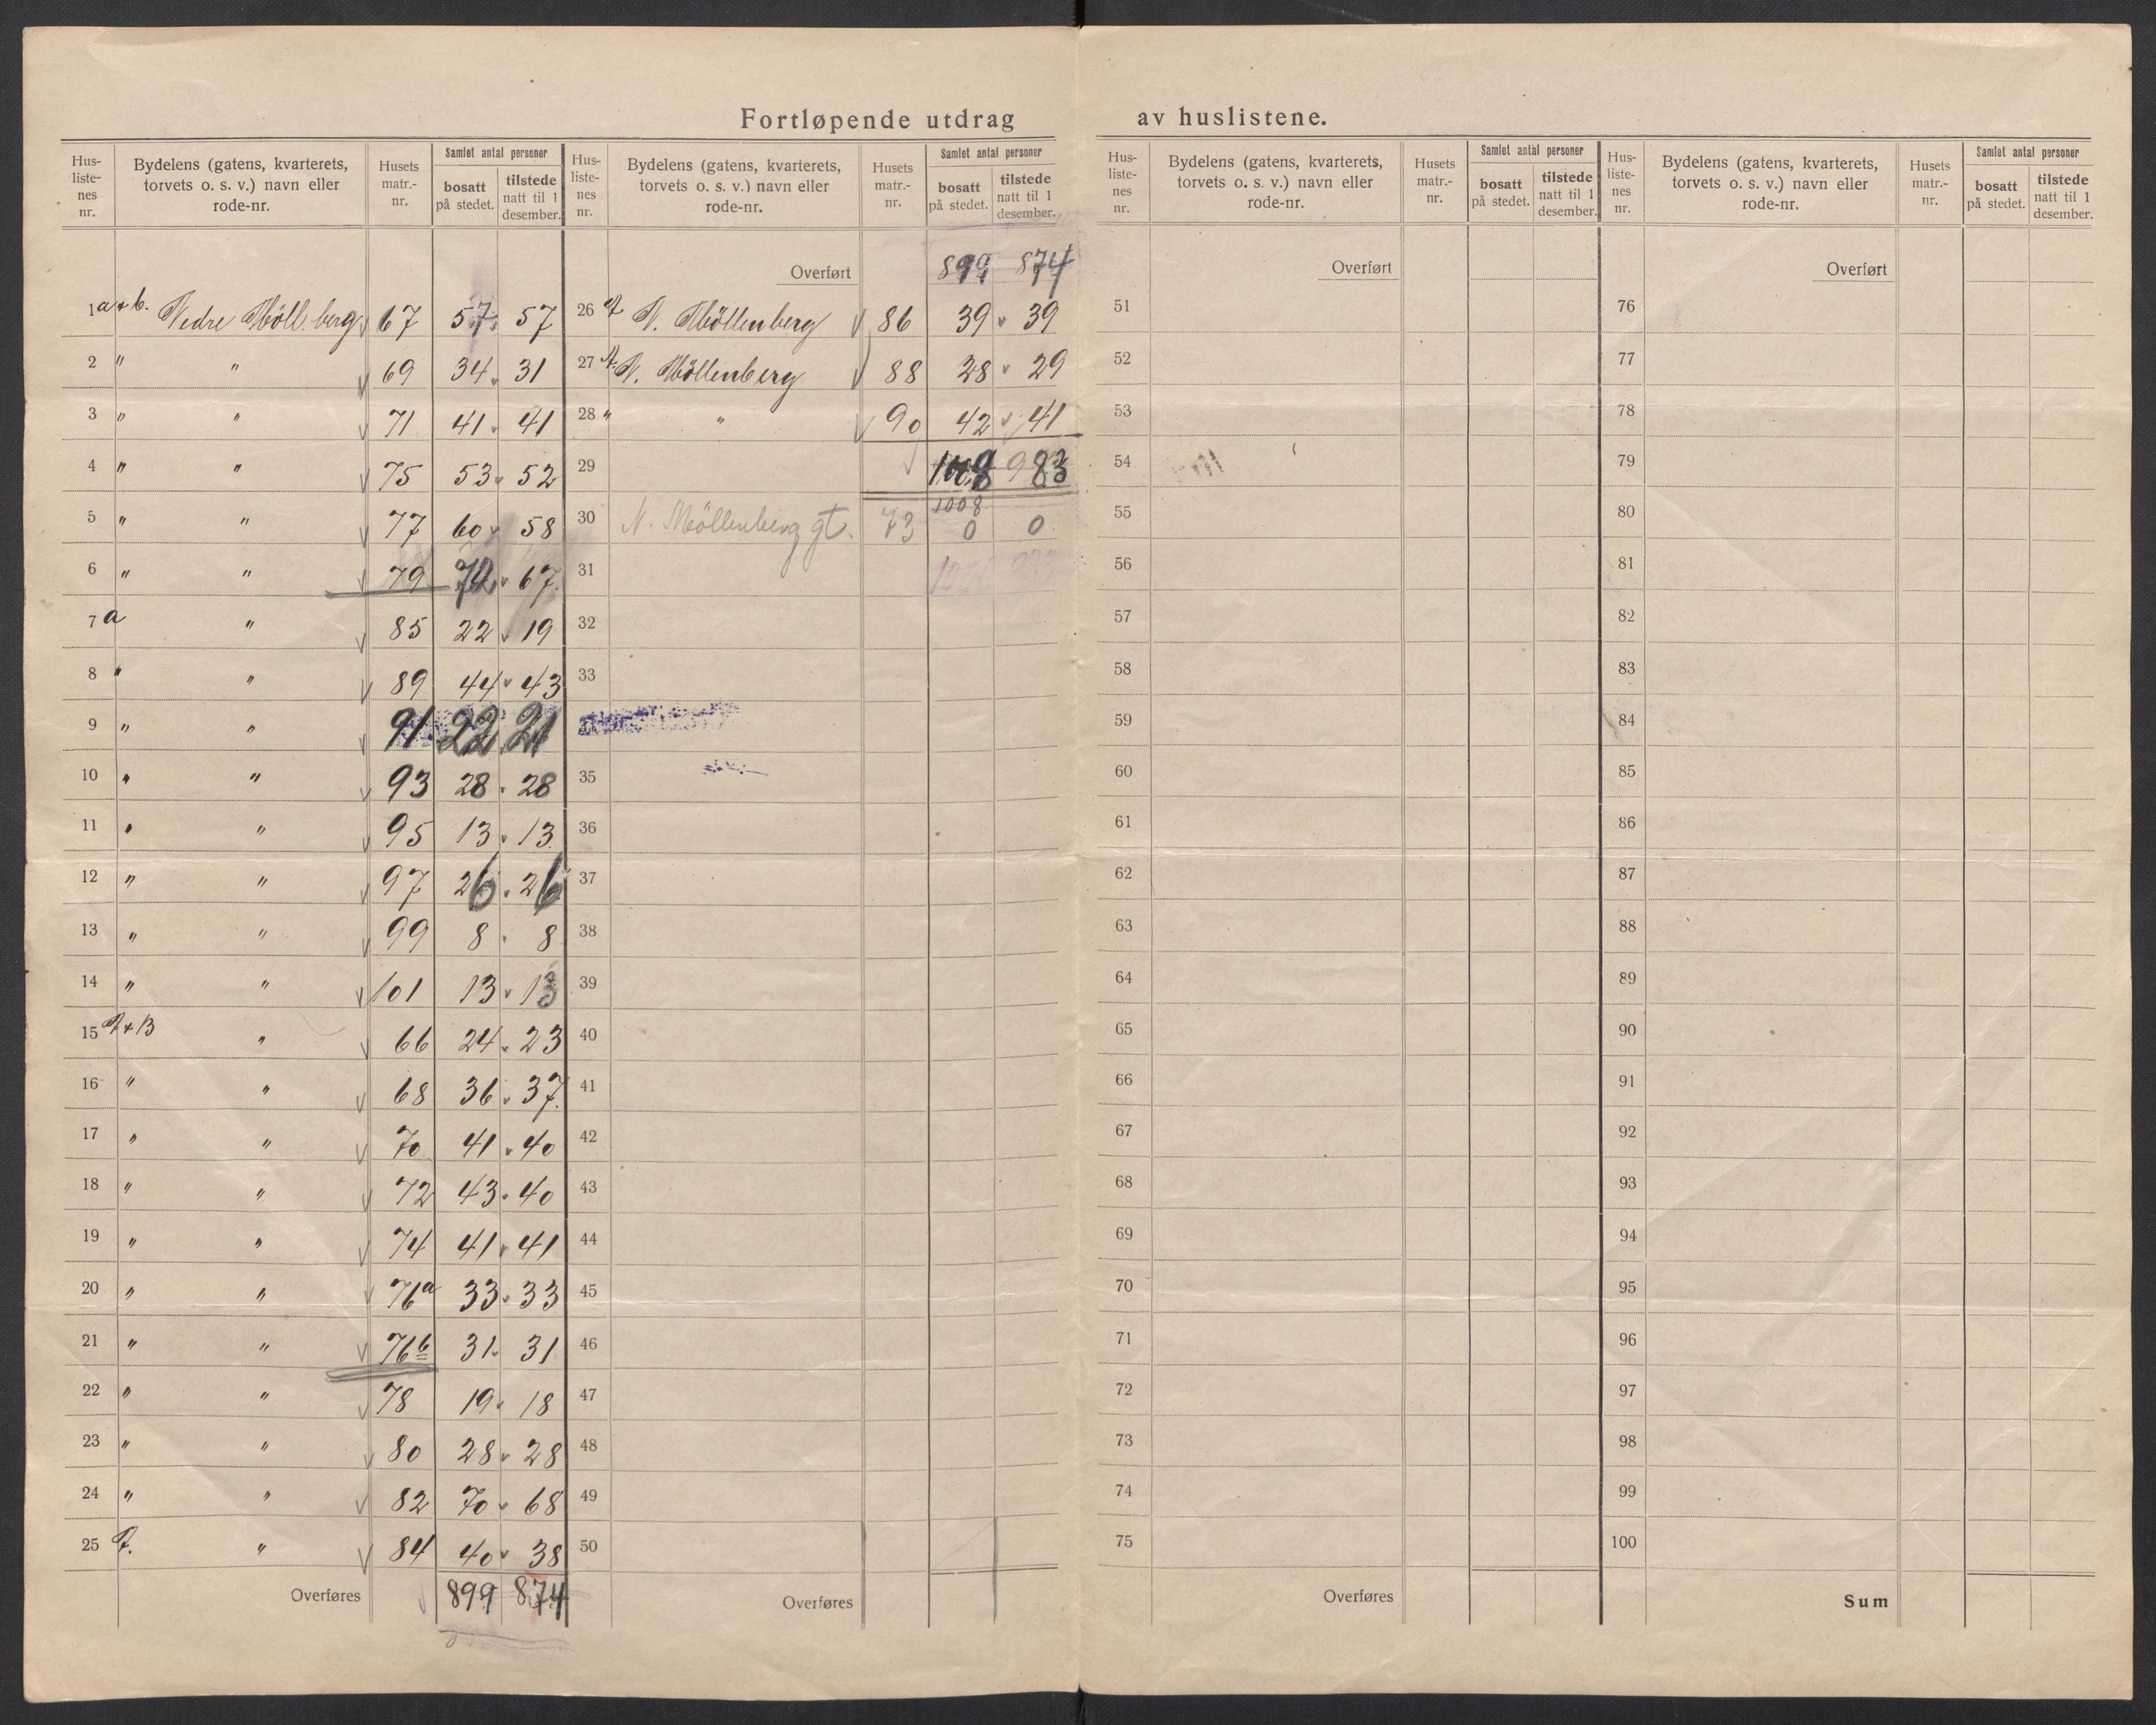 Fortløpende utdrag av huslistene.
Hus-liste-nes nr. Bydelens (gatens, kvarterets, torvets o. s. v.) navn eller rode-nr. Husets matr.-nr. Samlet antal personer bosatt på stedet. tilstede natt til 1 desember.
1 a+b. Nedre Möll.berg 67 57 57
2 " " 69 34 31
3 " " 71 41 41
4 " " 75 53 52
5 " " 77 60 58
6 " " 79 72 67
7 a " 85 22 19
8 " " 89 44 43
9 " " 91 22 21
10 " " 93 28 28
11 " " 95 13 13
12 " " 97 26 26
13 " " 99 8 8
14 " " 101 13 13
15 A+B " 66 24 23
16 " " 68 36 37
17 " " 70 41 40
18 " " 72 43 40
19 " " 74 41 41
20 " " 76a 33 33
21 " " 76b 31 31
22 " " 78 19 18
23 " " 80 28 28
24 " " 82 70 68
25 " 84 40 38
Overføres 899 874
Hus-liste-nes nr. Bydelens (gatens, kvarterets, torvets o. s. v.) navn eller rode-nr. Husets matr.-nr. Samlet antal personer bosatt på stedet. tilstede natt til 1 desember.
Overført 899 874
26 N. Möllenberg 86 39 39
27 N. Möllenberg 88 28 29
28 " " 90 42 41
29 1008 983
1008
30 N. Möllenberg gt. 73 0 0
31
32
33
35
36
37
38
39
40
41
42
43
44
45
46
47
48
49
50
Overføres
Hus-liste-nes nr. Bydelens (gatens, kvarterets, torvets o. s. v.) navn eller rode-nr. Husets matr.-nr. Samlet antal personer bosatt på stedet. tilstede natt til 1 desember.
Overført
51
52
53
54
55
56
57
58
59
60
61
62
63
64
65
66
67
68
69
70
71
72
73
74
75
Overføres
Hus-liste-nes nr. Bydelens (gatens, kvarterets, torvets o. s. v.) navn eller rode-nr. Husets matr.-nr. Samlet antal personer bosatt på stedet. tilstede natt til 1 desember.
Overført
76
77
78
79
80
81
82
83
84
85
86
87
88
89
90
91
92
93
94
95
96
97
98
99
100
Sum